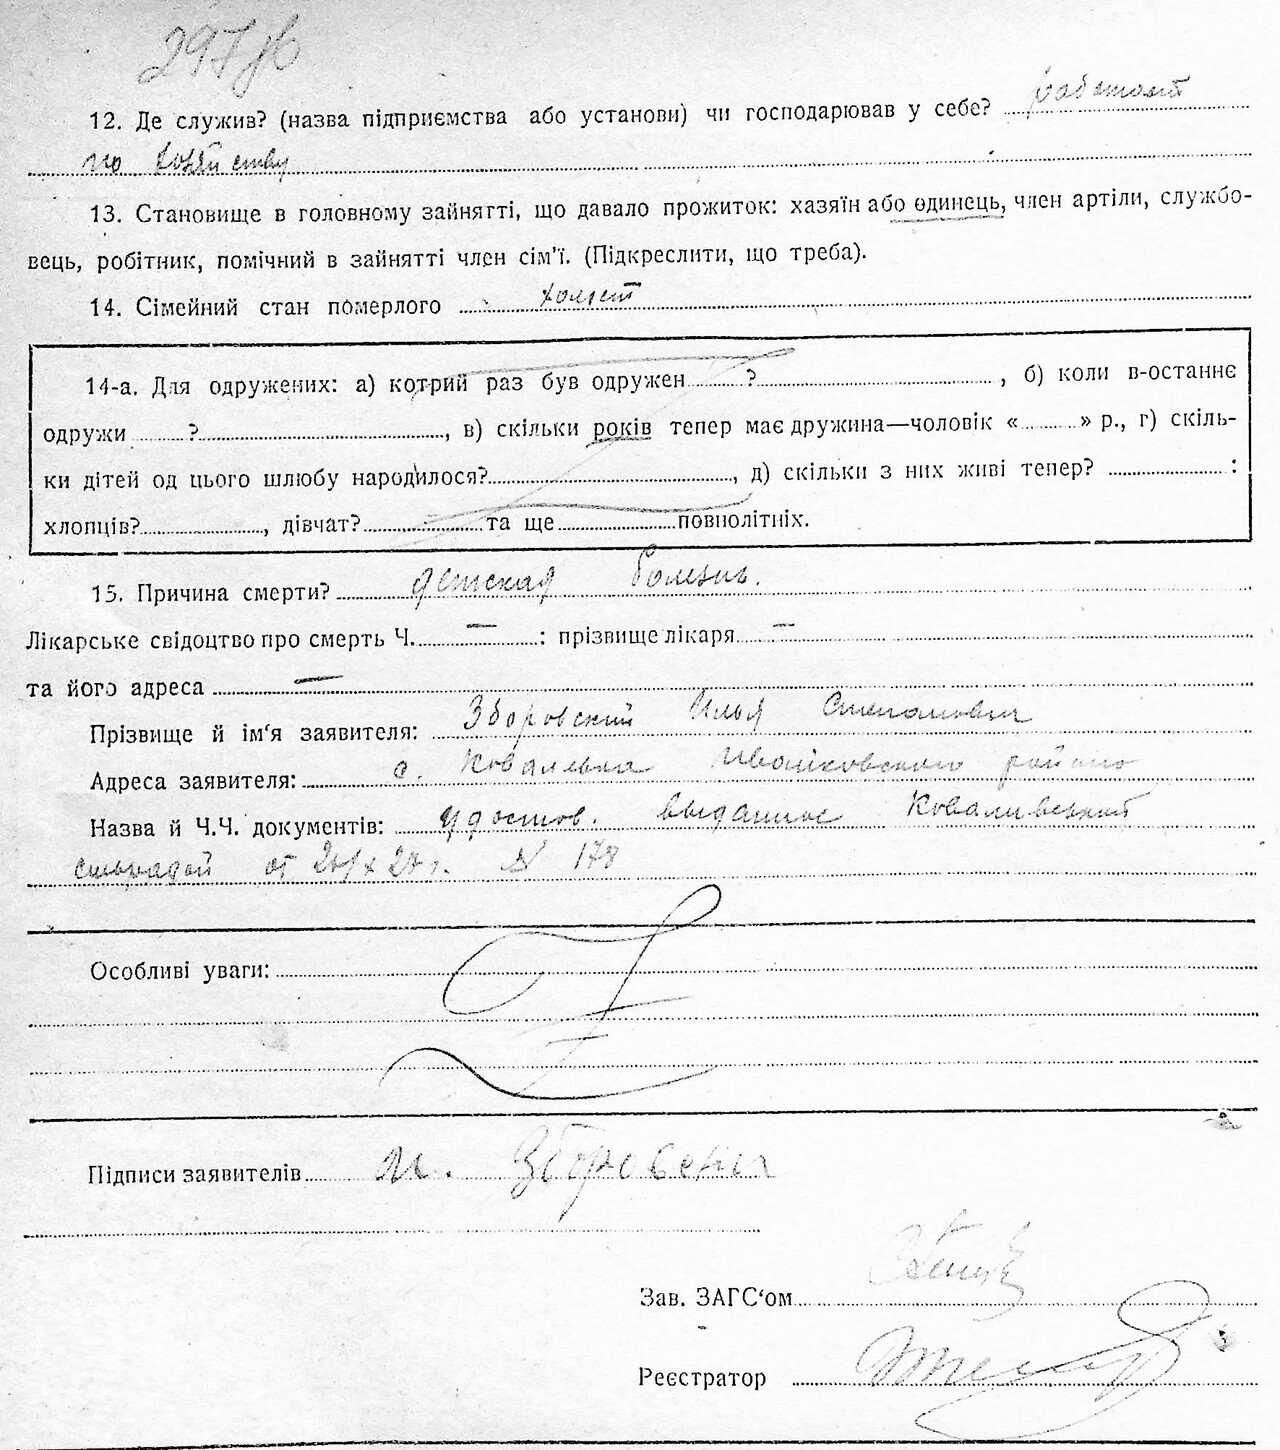 297
12. Де служив? (назва підприємства або установи) чи господарював у себе? работает
по хозяйству
13. Становище в головному зайнятті, що давало прожиток: хазяїн або одинець, член артіли, службо-
вець, робітник, помічний в зайнятті член сім'ї. (Підкреслити, що треба).
14. Сімейний стан померлого холост
14-а. Для одружених: а) котрий раз був одружен ? , б) коли в-останнє
одружи ? , в) скільки років тепер має дружина—чоловік « » р., г) скіль-
ки дітей од цього шлюбу народилося? , д) скільки з них живі тепер? :
хлопців? , дівчат? та ще повнолітніх.
15. Причина смерти? детская болезнь.
Лікарське свідоцтво про смерть Ч. — : прізвище лікаря —
та його адреса —
Прізвище й ім'я заявителя: Зборовский Илья Степанович
Адреса заявителя: с. Ковалевка Ивановского района
Назва й Ч.Ч. документів: удостов. выданное Коваливський
сельрадой от 27 г. N 178
Особливі уваги:
Підписи заявителів И. Зборовский
Зав. ЗАГС'ом
Реєстратор